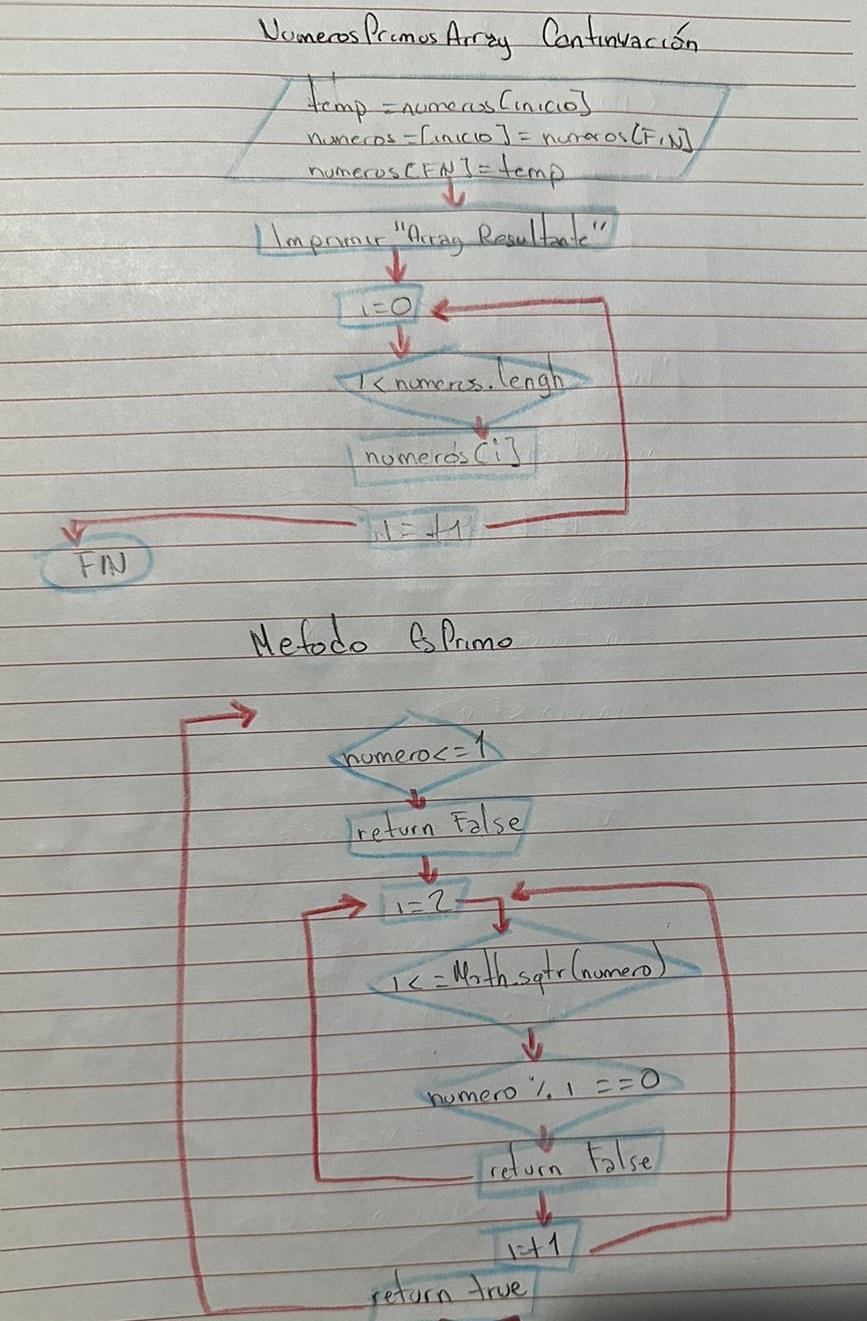 NumerosPrimosArray Continuación
temp = numeros[inicio]
numeros = [inicio] = numeros[FIN]
numeros[FIN] = temp
Imprimir "Array Resultante"
i=0
i < numeros.lengh
numeros[i]
i = +1
FIN
Metodo esPrimo
numero <= 1
return False
i=2
i <= Math.sqtr(numero)
numero % i == 0
return False
i=+1
return true